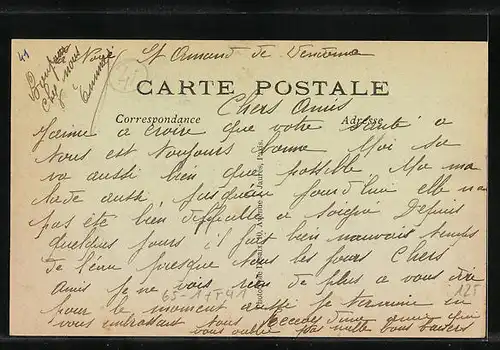 41
Noyé St Amand de Vendome
CARTE POSTALE
Correspondance Adresse
Chers Amis
J'aime a croire que votre santé a
tous est toujours bonne Moi sa
va aussi bien que possible Ma ma
lade aussi, jusqu'au jourd'hui elle na
pas été bien difficile a soigné Depuis
quelques jours il fait bien mauvais temps
de l'eau presque tous les jours Chers
amis je ne vois rien de plus a vous dire
65-1TT41 125
pour le moment aussi je termine en
vous embrassant tous Recevez d'une amie qui
vous oublie pas mille bons baisers